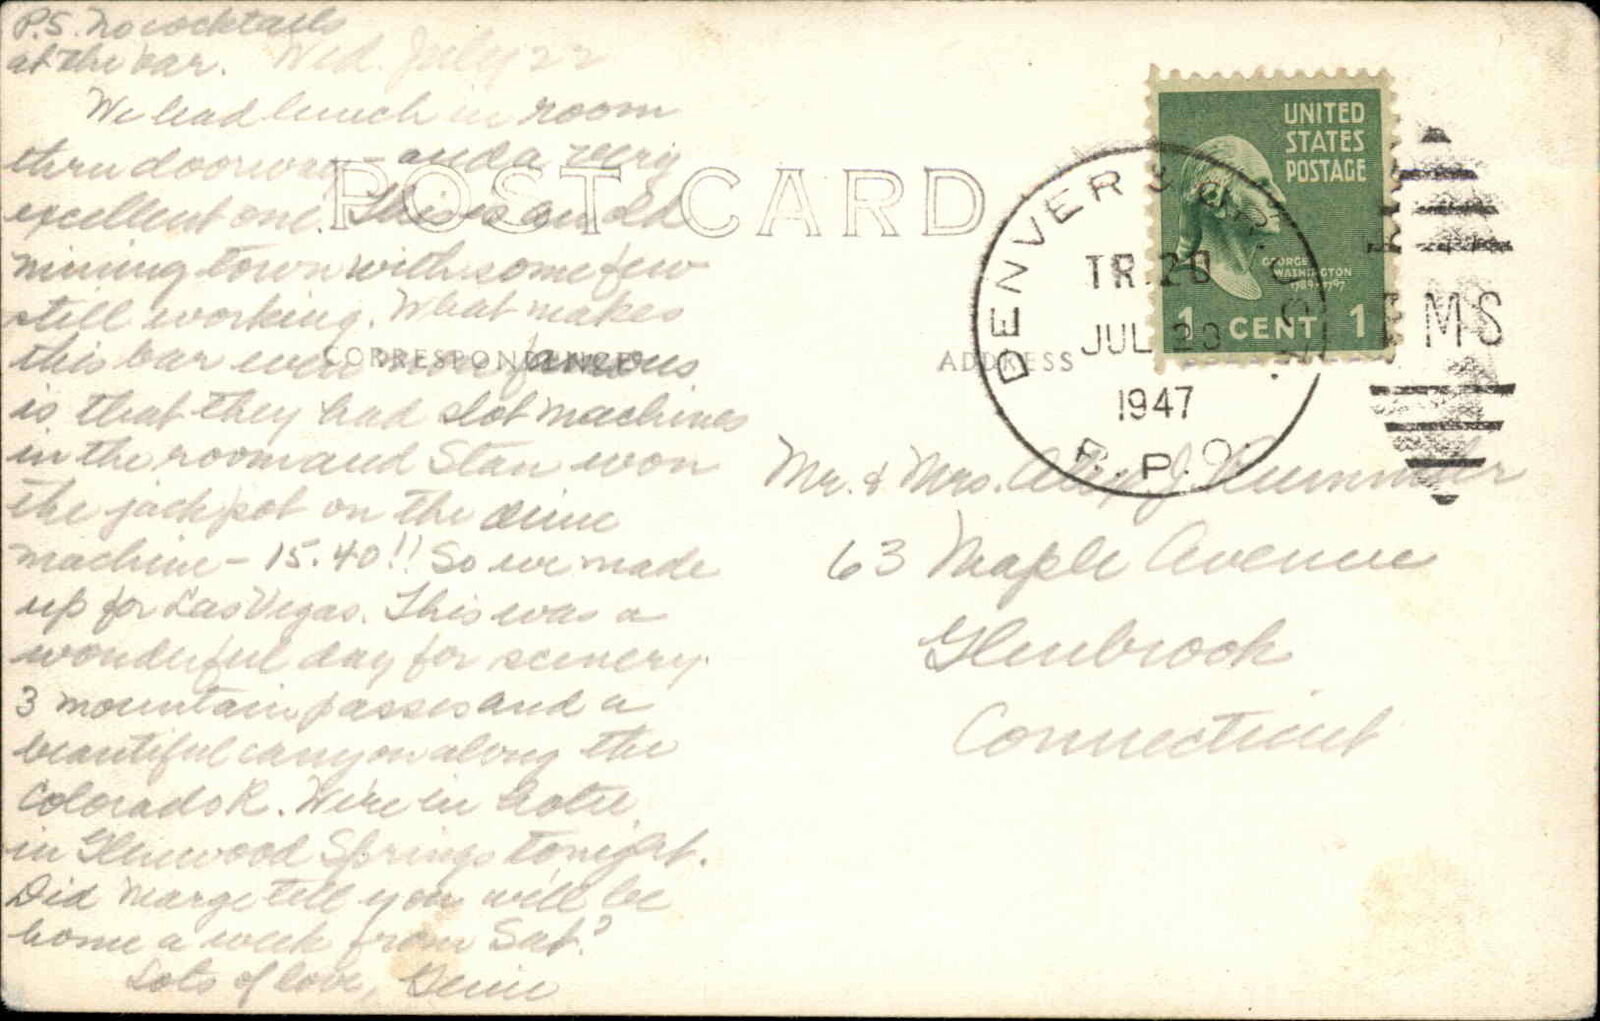 P.S. No cocktails
at the bar. Wed. July 22
We had lunch in room
thru doorway - and a very
excellent one. This is an old
mining town with some few
still working. What makes
this bar even more famous
is that they had slot machines
in the room and Stan won
the jackpot on the dime
machine - 15.40!! So we made
up for Las Vegas. This was a
wonderful day for scenery.
3 mountain passes and a
beautiful canyon along the
Colorado R. We're in hotel
in Glenwood Springs tonight.
Did Marge tell you will be
home a week from Sat.?
Lots of love,
POST CARD
CORRESPONDENCE
ADDRESS
UNITED
STATES
POSTAGE
GEORGE
WASHINGTON
1789-1797
1 CENT 1
DENVER &
TR. 28
JUL 23
1947
R.P.O.
RMS
Mr. & Mrs. J.
63 Maple Avenue
Glenbrook
Connecticut